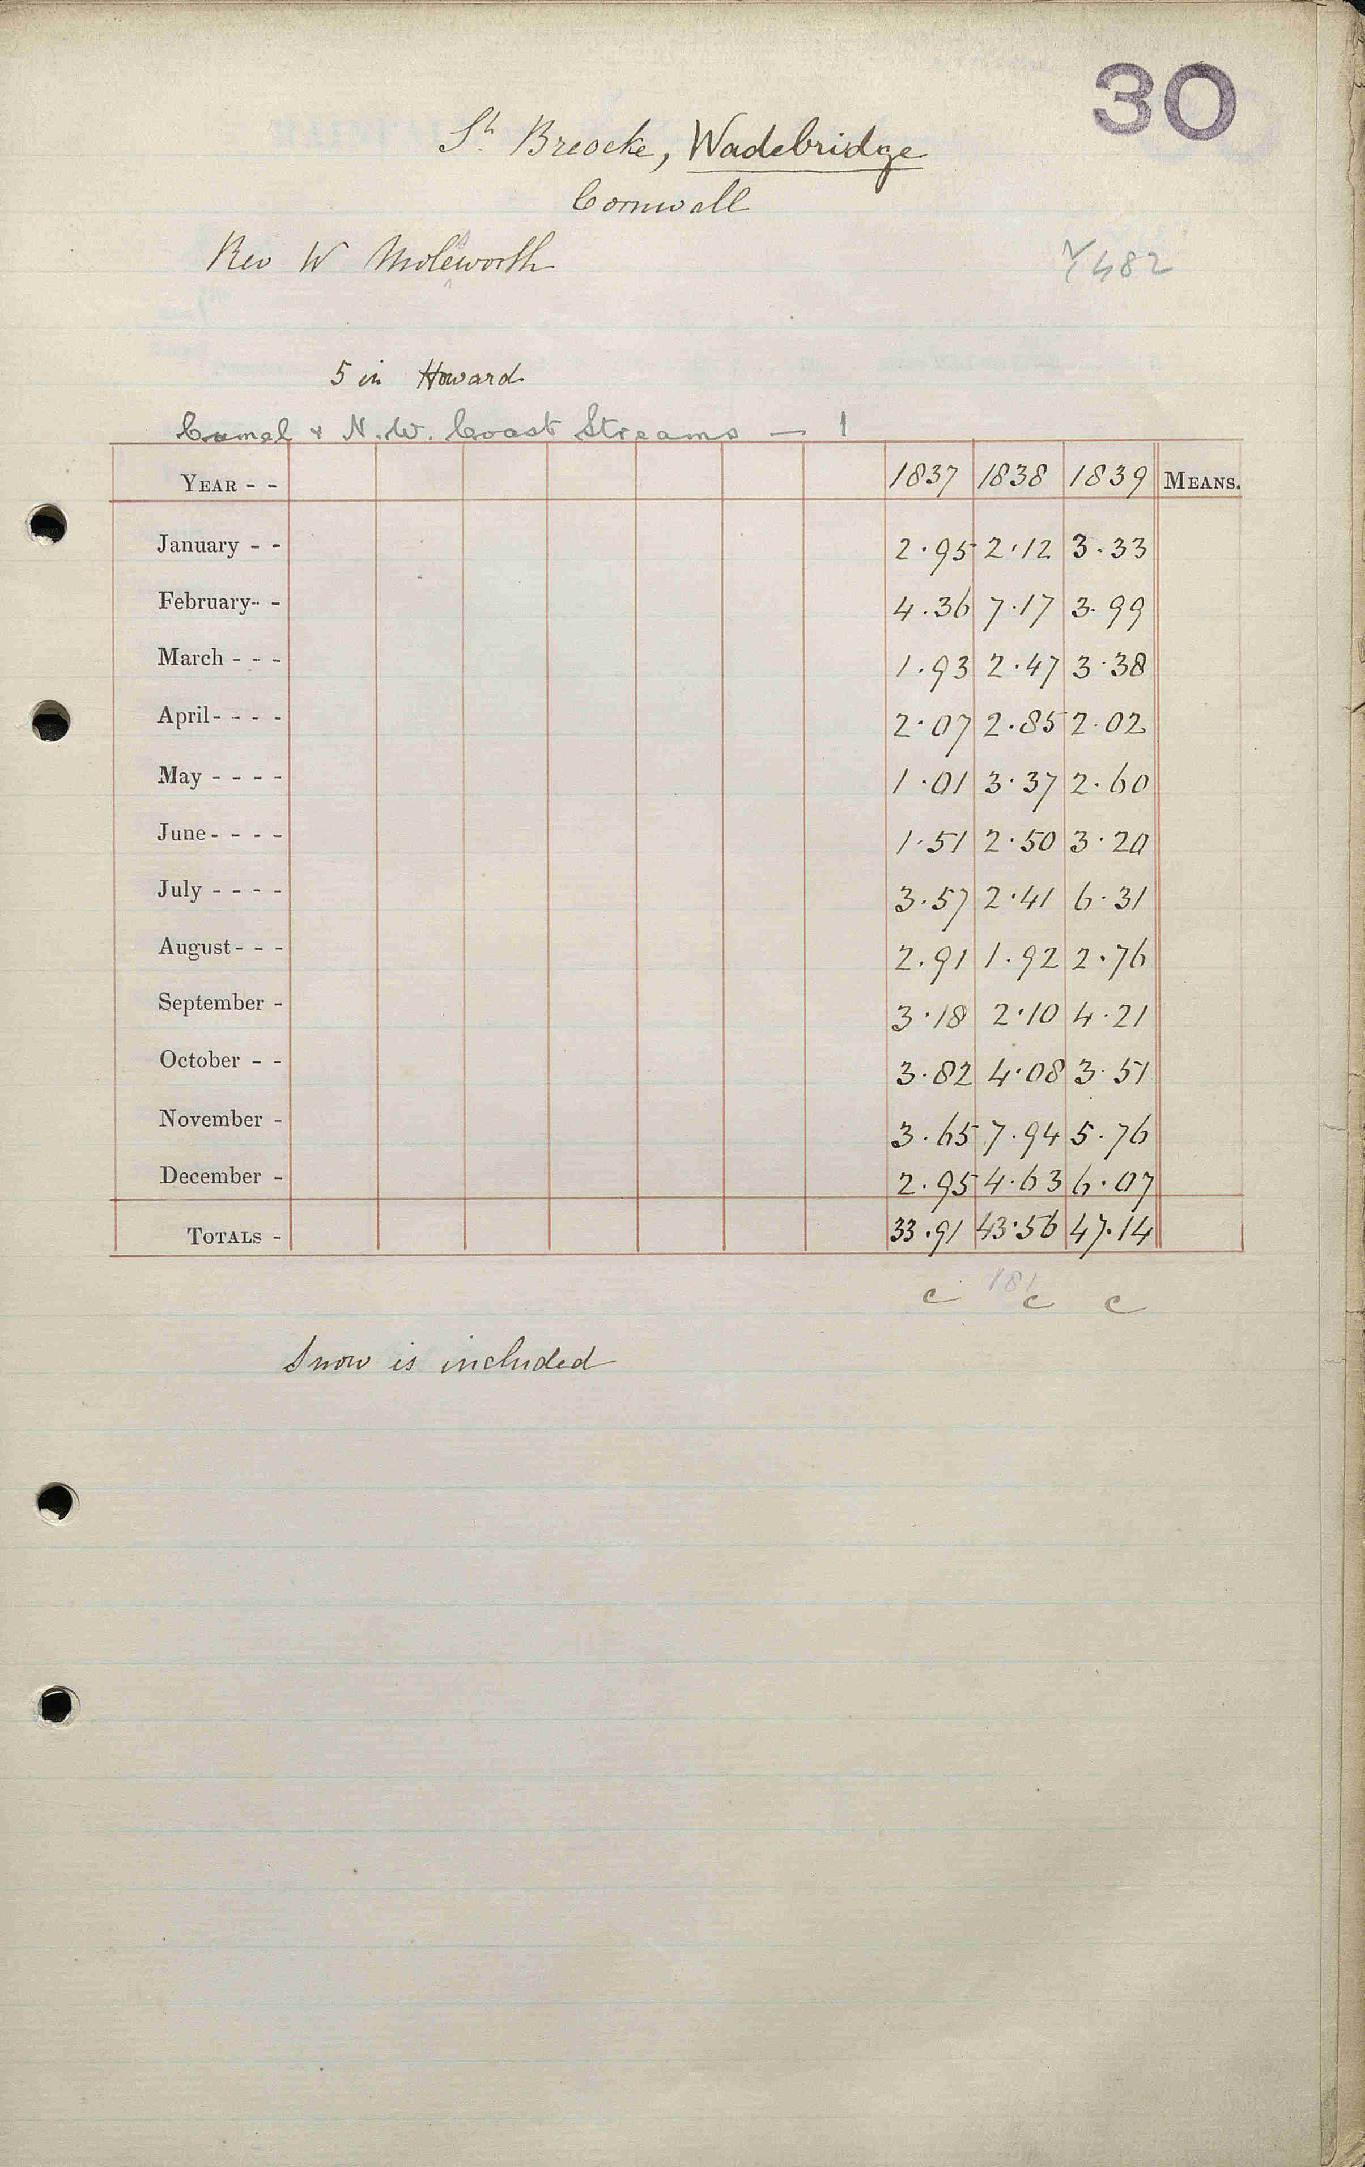 30
St. Breocke, Wadebridge
Cornwall
Rev W Molesworth
482
5 in Howard
Camel & N.W. Coast Streams — 1
YEAR - - 1837 1838 1839 MEANS.
January - - 2.95 2.12 3.33
February - - 4.36 7.17 3.99
March - - - 1.93 2.47 3.38
April - - - - 2.07 2.85 2.02
May - - - - 1.01 3.37 2.60
June - - - - 1.51 2.50 3.20
July - - - - 3.57 2.41 6.31
August - - - 2.91 1.92 2.76
September - 3.18 2.10 4.21
October - - 3.82 4.08 3.51
November - 3.65 7.94 5.76
December - 2.95 4.63 6.07
TOTALS - 33.91 43.56 47.14
181
c c c
Snow is included